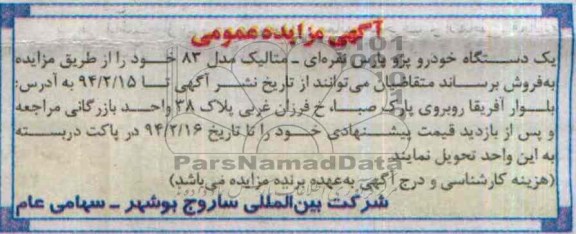 آگهی مزایده عمومی
یک دستگاه خودرو پژو پارس نقره‌ای ـ متالیک مدل ۸۳ خود را از طریق مزایده
به‌فروش برساند متقاضیان می‌توانند از تاریخ نشر آگهی تا ۹۴/۲/۱۵ به آدرس:
بلوار آفریقا روبروی پارک صبا، خ فرزان غربی پلاک ۳۸ واحد بازرگانی مراجعه
و پس از بازدید قیمت پیشنهادی خود را تا تاریخ ۹۴/۲/۱۶ در پاکت دربسته
به این واحد تحویل نمایند
ParsNamadData
(هزینه کارشناسی و درج آگهی به‌عهده برنده مزایده می‌باشد)
شرکت بین‌المللی ساروج بوشهر ـ سهامی عام